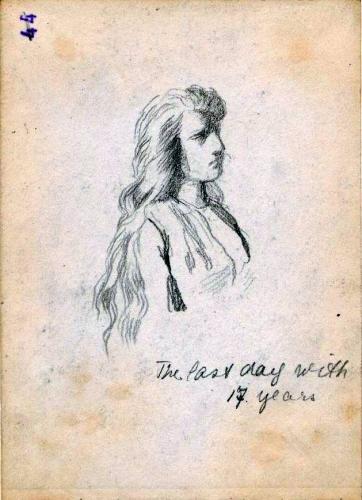 44
The last day with
17 years